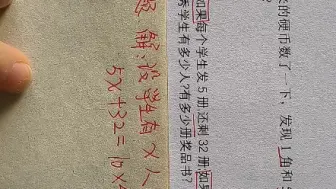 来的硬币数了一下，发现1角和5
如果每个学生发5册还剩32册如果
秀学生有多少人?有多少册奖品书?
解:设学生有x人
5x+32=10x